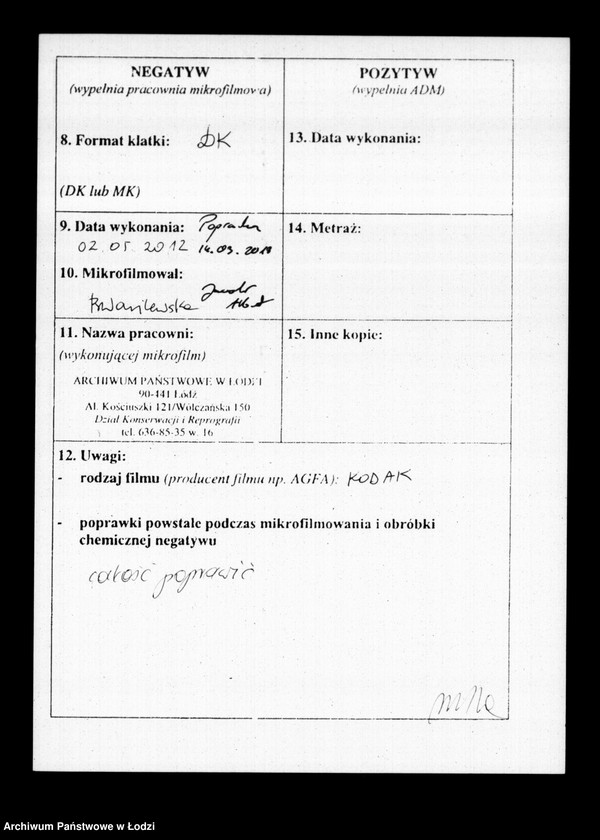 NEGATYW
(wypełnia pracownia mikrofilmowa)
8. Format klatki: DK
(DK lub MK)
9. Data wykonania: Poprawka
02.05.2012 14.03.2018
10. Mikrofilmował:
11. Nazwa pracowni:
(wykonującej mikrofilm)
ARCHIWUM PAŃSTWOWE W ŁODZI
90-441 Łódź
Al. Kościuszki 121/Wólczańska 150
Dział Konserwacji i Reprografii
tel. 636-85-35 w. 16
POZYTYW
(wypełnia ADM)
13. Data wykonania:
14. Metraż:
15. Inne kopie:
12. Uwagi:
- rodzaj filmu (producent filmu np. AGFA): KODAK
- poprawki powstałe podczas mikrofilmowania i obróbki
chemicznej negatywu
całość poprawić
Archiwum Państwowe w Łodzi